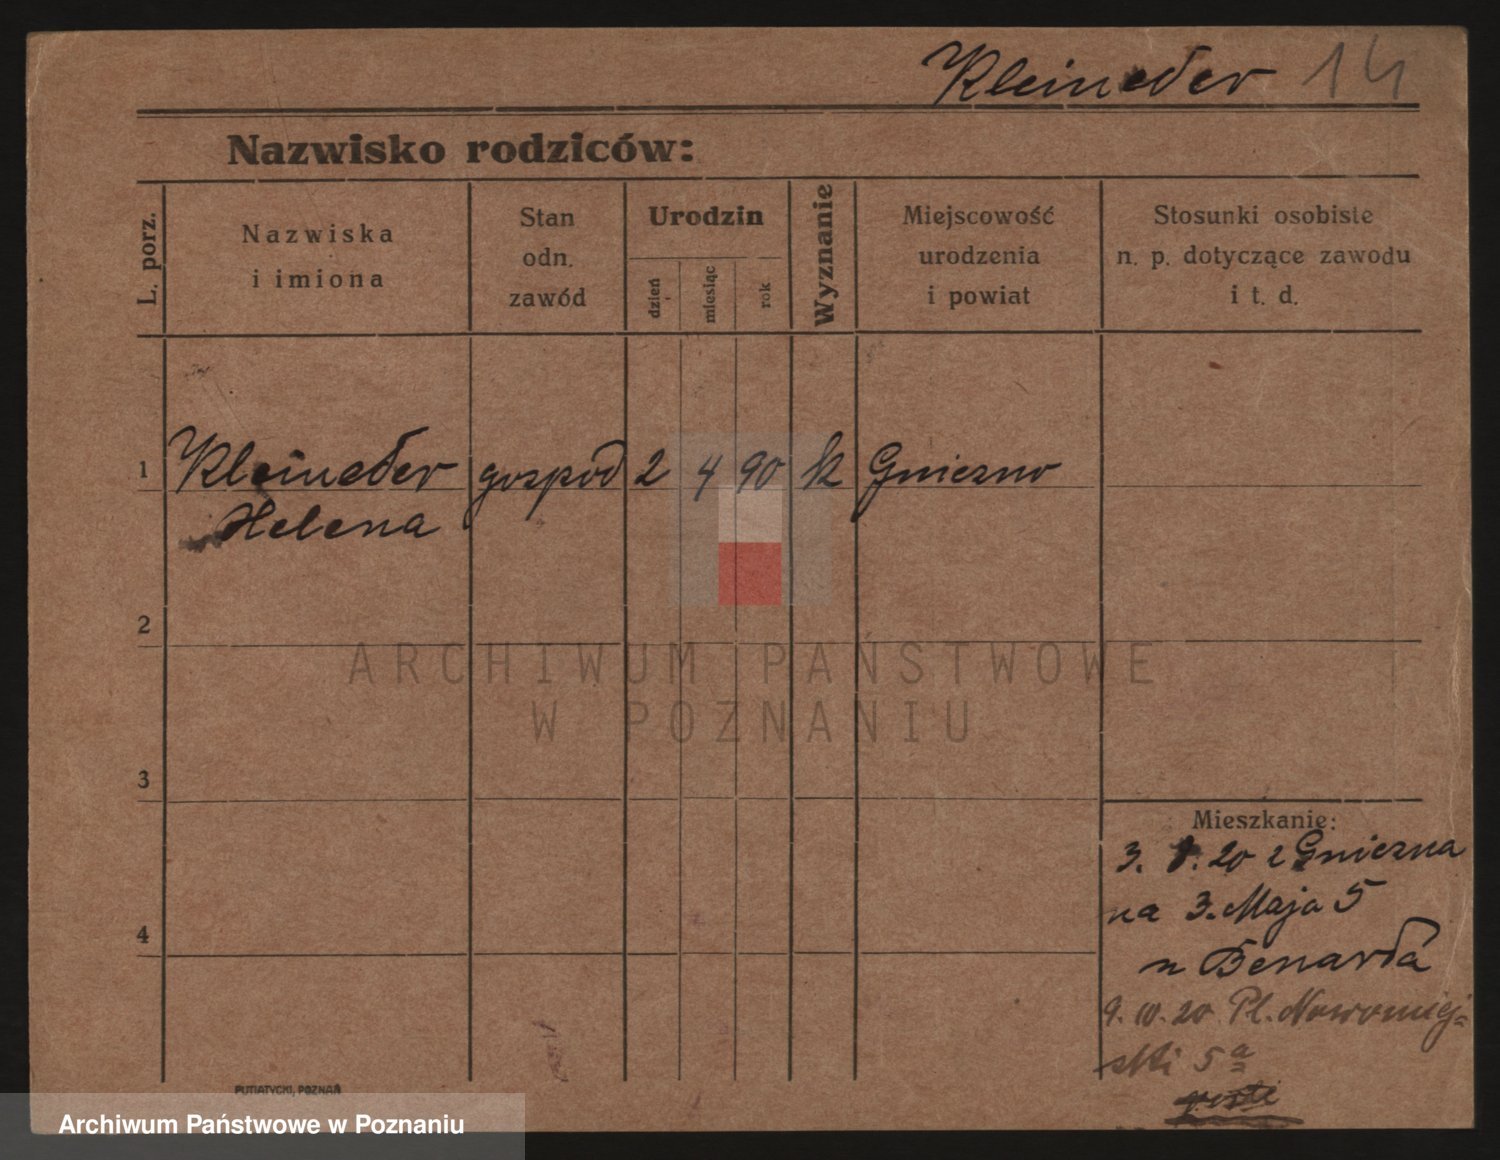 Kleineder 14
Nazwisko rodziców:
L. porz.
Nazwiska
i imiona
Stan
odn.
zawód
Urodzin
dzień
miesiąc
rok
Wyznanie
Miejscowość
urodzenia
i powiat
Stosunki osobiste
n. p. dotyczące zawodu
i t. d.
1 Kleineder gospod 2 4 90 k Gniezno
Helena
2
ARCHIWUM PAŃSTWOWE
W POZNANIU
3
Mieszkanie:
3. 8. 20 z Gniezna
na 3. Maja 5
4
u Benarda
9. 10. 20 Pl. Nowomiej-
ski 5a
PUTIATYCKI, POZNAŃ
Archiwum Państwowe w Poznaniu